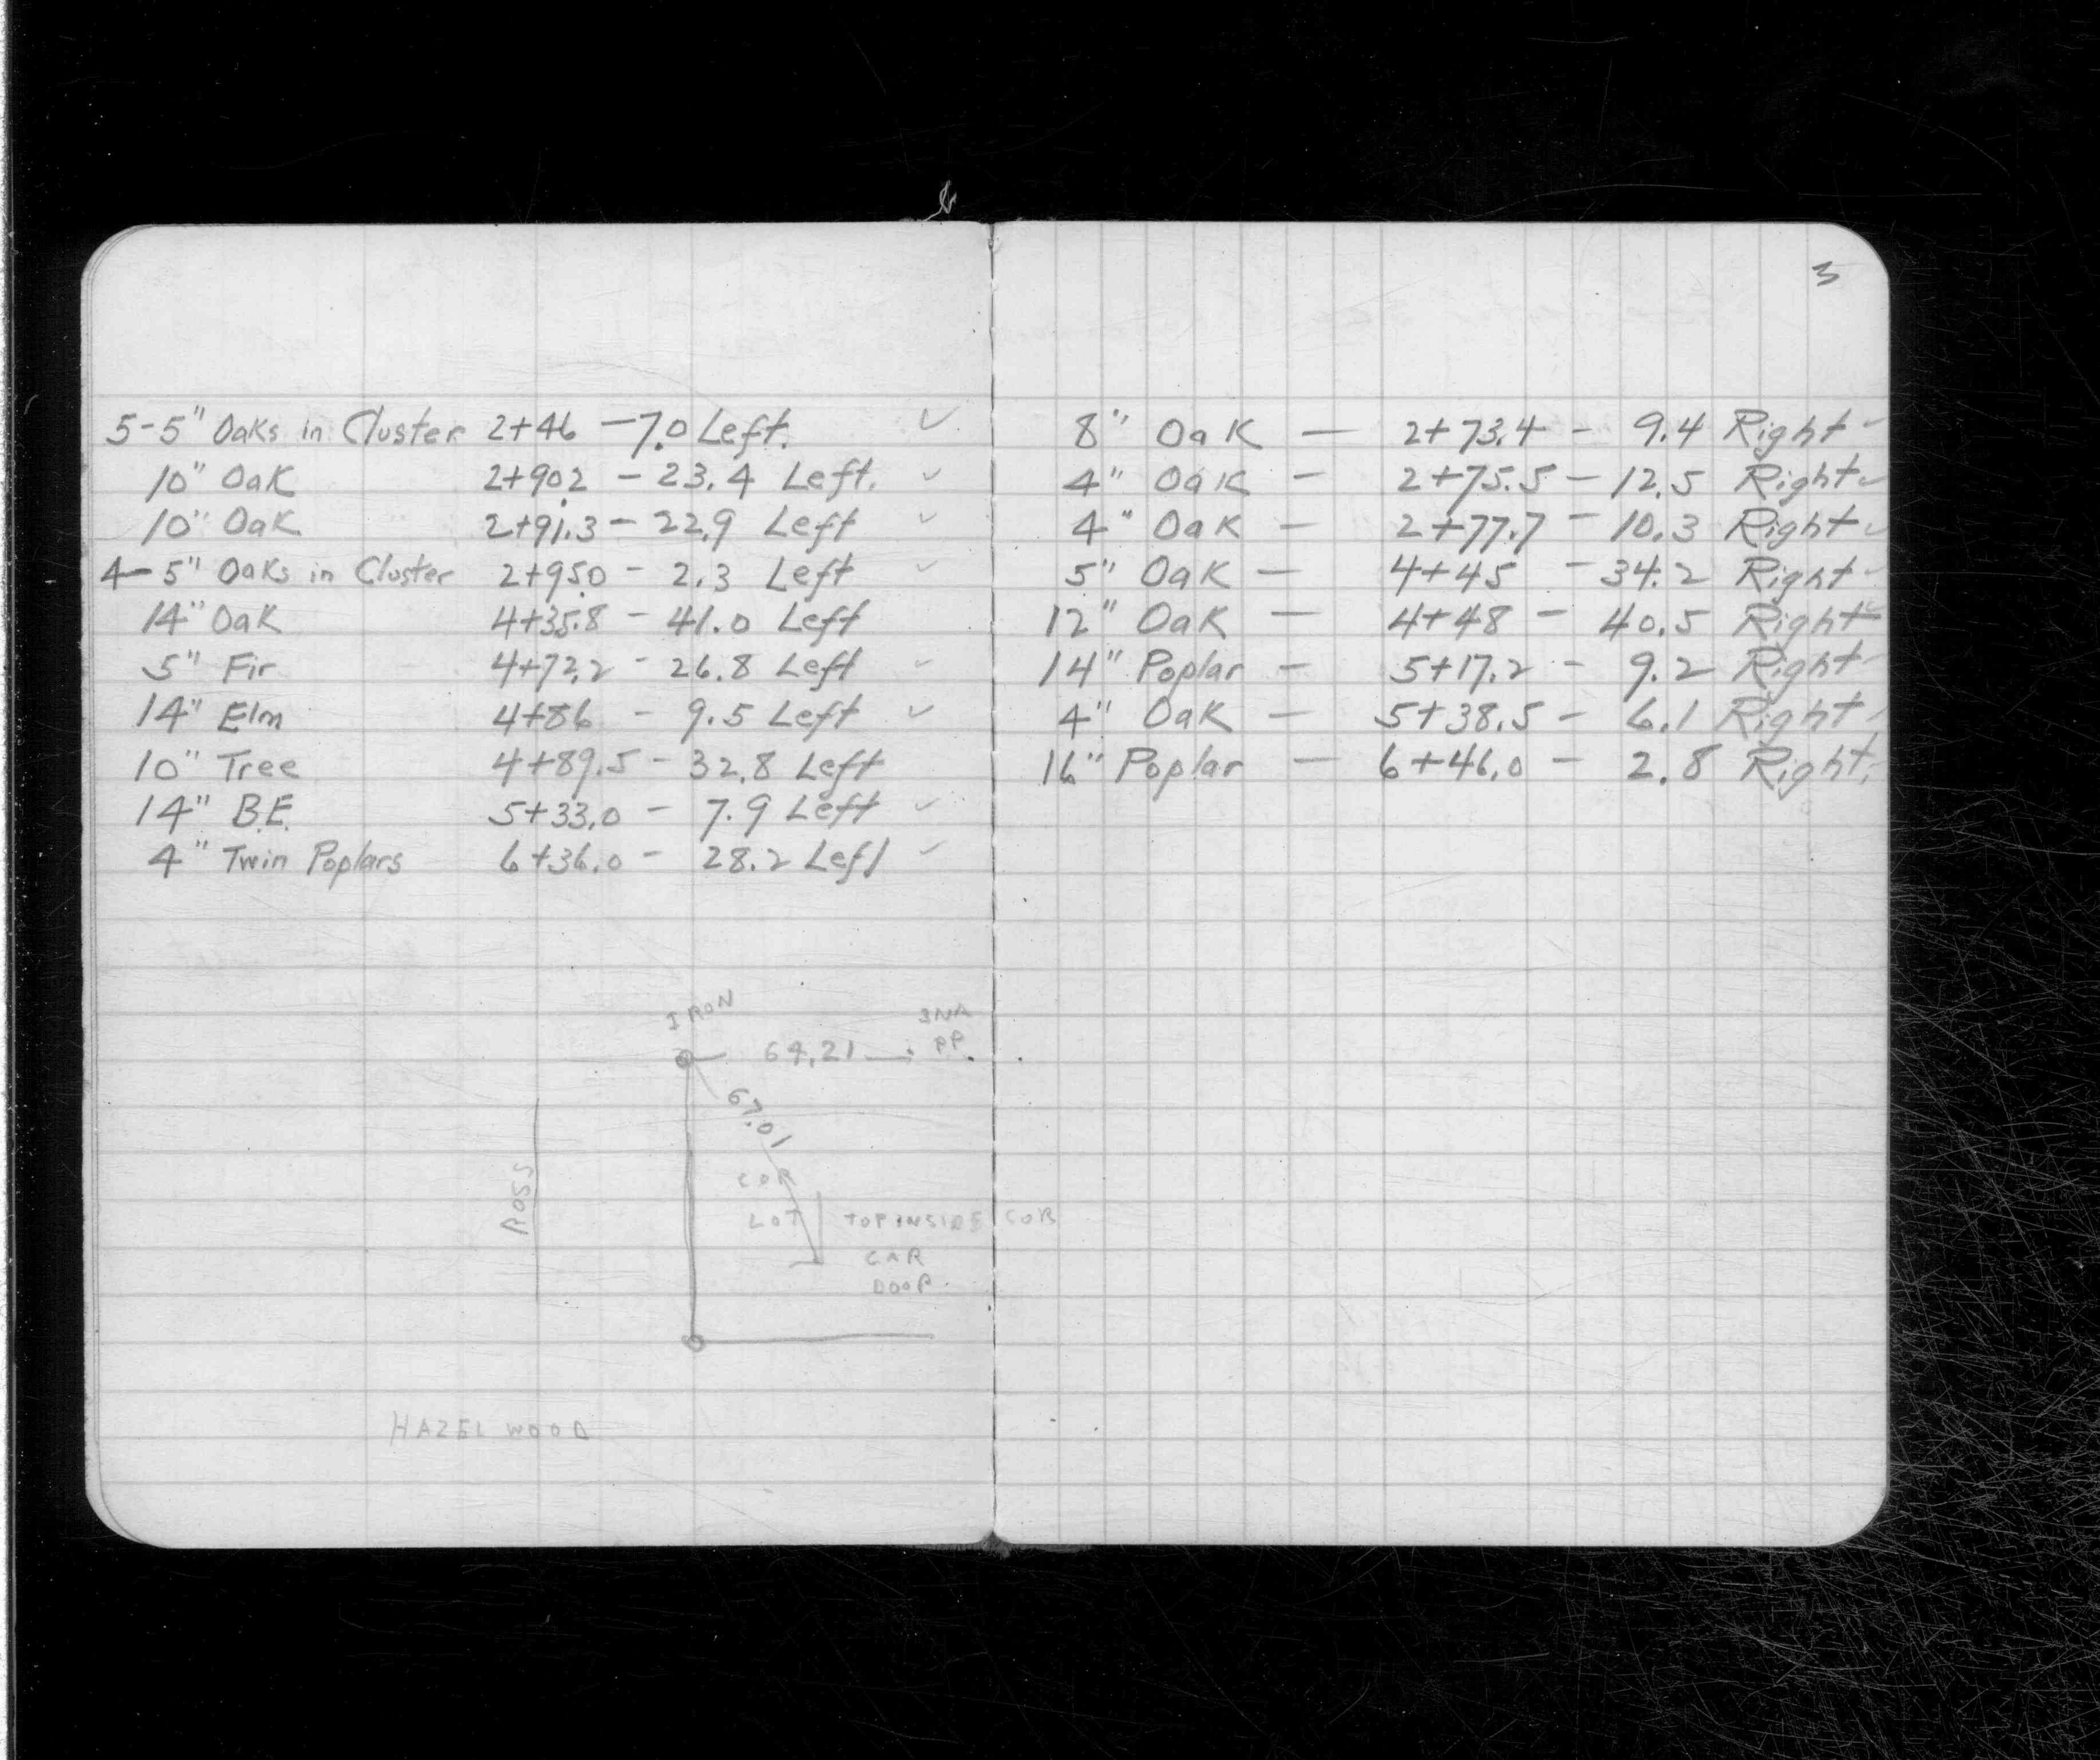 3
5-5" Oaks in Cluster 2+46 - 7.0 Left.
10" Oak 2+90.2 - 23.4 Left.
10" Oak 2+91.3 - 22.9 Left
4-5" Oaks in Cluster 2+95.0 - 2.3 Left
14" Oak 4+35.8 - 41.0 Left
5" Fir 4+72.2 - 26.8 Left
14" Elm 4+86 - 9.5 Left
10" Tree 4+89.5 - 32.8 Left
14" B.E. 5+33.0 - 7.9 Left
4" Twin Poplars 6+36.0 - 28.2 Left
IRON
64.21
PP.
67.01
COR
LOT
TOP INSIDE COR
CAR
DOOR
ROSS
HAZELWOOD
8" Oak - 2+73.4 - 9.4 Right
4" Oak - 2+75.5 - 12.5 Right
4" Oak - 2+77.7 - 10.3 Right
5" Oak - 4+45 - 34.2 Right
12" Oak - 4+48 - 40.5 Right
14" Poplar - 5+17.2 - 9.2 Right
4" Oak - 5+38.5 - 6.1 Right
16" Poplar - 6+46.0 - 2.8 Right